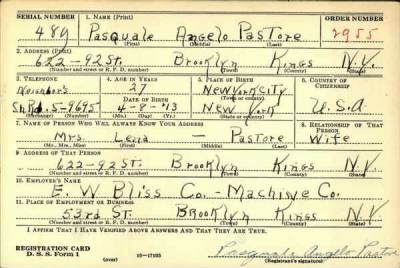 SERIAL NUMBER 1. NAME (Print) ORDER NUMBER
489 Pasquale Angelo Pastore 2955
(First) (Middle) (Last)
2. ADDRESS (Print)
622-92 St. Brooklyn Kings N.Y.
(Number and street or R. F. D. number) (Town) (County) (State)
3. TELEPHONE 4. AGE IN YEARS 5. PLACE OF BIRTH 6. COUNTRY OF CITIZENSHIP
Neighbors 27 New York City
DATE OF BIRTH (Town or county)
Sh Rd. 5-9695 4-8-'13 New York U.S.A
(Exchange) (Number) (Mo.) (Day) (Yr.) (State or country)
7. NAME OF PERSON WHO WILL ALWAYS KNOW YOUR ADDRESS 8. RELATIONSHIP OF THAT PERSON
Mrs. Lena — Pastore Wife
(Mr., Mrs., Miss) (First) (Middle) (Last)
9. ADDRESS OF THAT PERSON
622-92 St. Brooklyn Kings N.Y
(Number and street or R. F. D. number) (Town) (County) (State)
10. EMPLOYER'S NAME
E. W Bliss Co. - Machine Co.
11. PLACE OF EMPLOYMENT OR BUSINESS
53rd St. Brooklyn Kings N.Y
(Number and street or R. F. D. number) (Town) (County) (State)
I AFFIRM THAT I HAVE VERIFIED ABOVE ANSWERS AND THAT THEY ARE TRUE.
REGISTRATION CARD
D. S. S. Form 1 (over) 16—17105 Pasquale Angelo Pastore
(Registrant's signature)